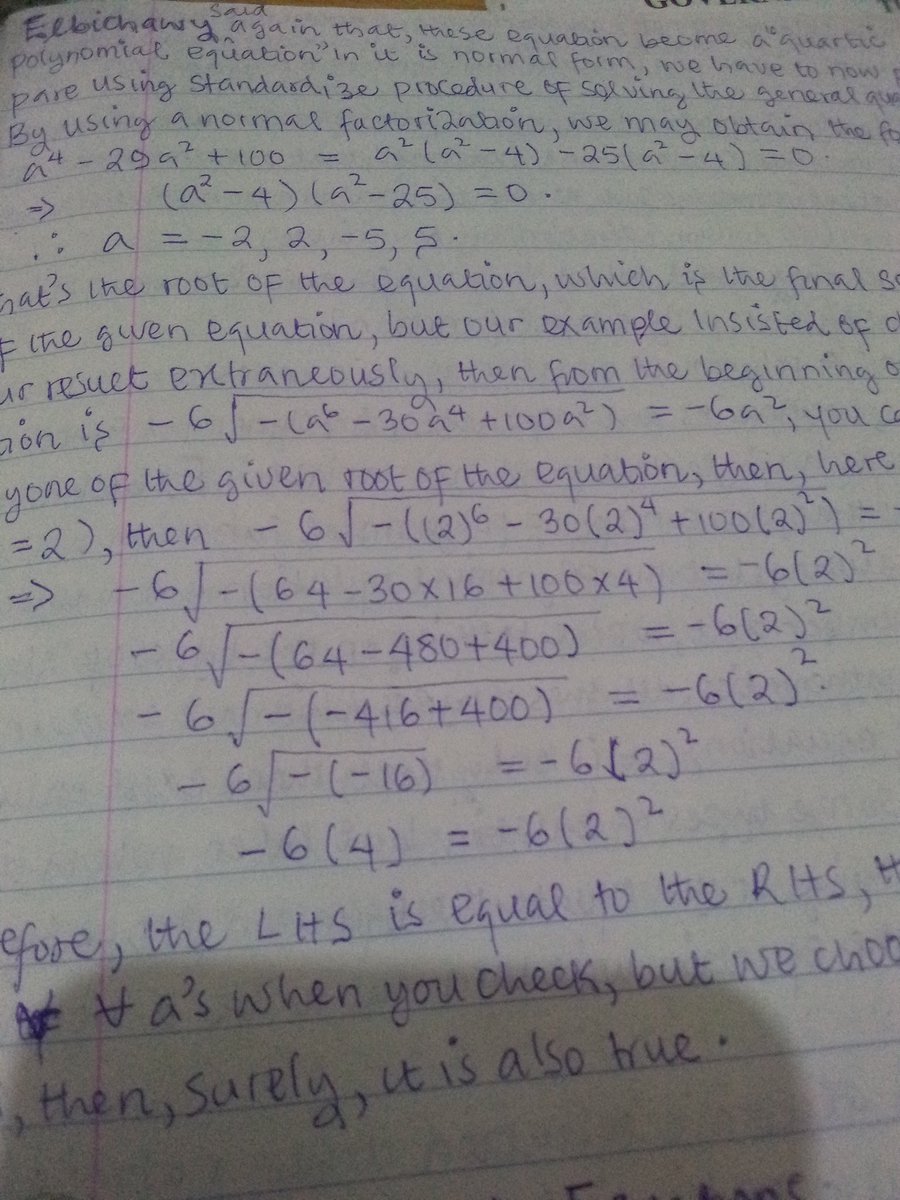 GOVER
Said
Elbichawy again that, these equation become a "quartic
polynomial equation" in it is normal form, we have to now
pare using standardize procedure of solving the general qua
By using a normal factorization, we may obtain the fo
a⁴ - 29a² + 100 = a²(a² - 4) - 25(a² - 4) = 0.
⇒ (a² - 4)(a² - 25) = 0.
∴ a = -2, 2, -5, 5.
hat's the root of the equation, which is the final s
f the given equation, but our example insisted of c
ur result extraneously, then from the beginning o
ion is -6√-(a⁶ - 30a⁴ + 100a²) = -6a², you c
yone of the given root of the equation, then, here
=2), then -6√-((2)⁶ - 30(2)⁴ + 100(2)²) = -
⇒ -6√-(64 - 30×16 + 100×4) = -6(2)²
-6√-(64 - 480 + 400) = -6(2)²
-6√-(-416 + 400) = -6(2)².
-6√-(-16) = -6(2)²
-6(4) = -6(2)²
efore, the LHS is equal to the RHS, t
∀ a's when you check, but we choo
, then, surely, it is also true.